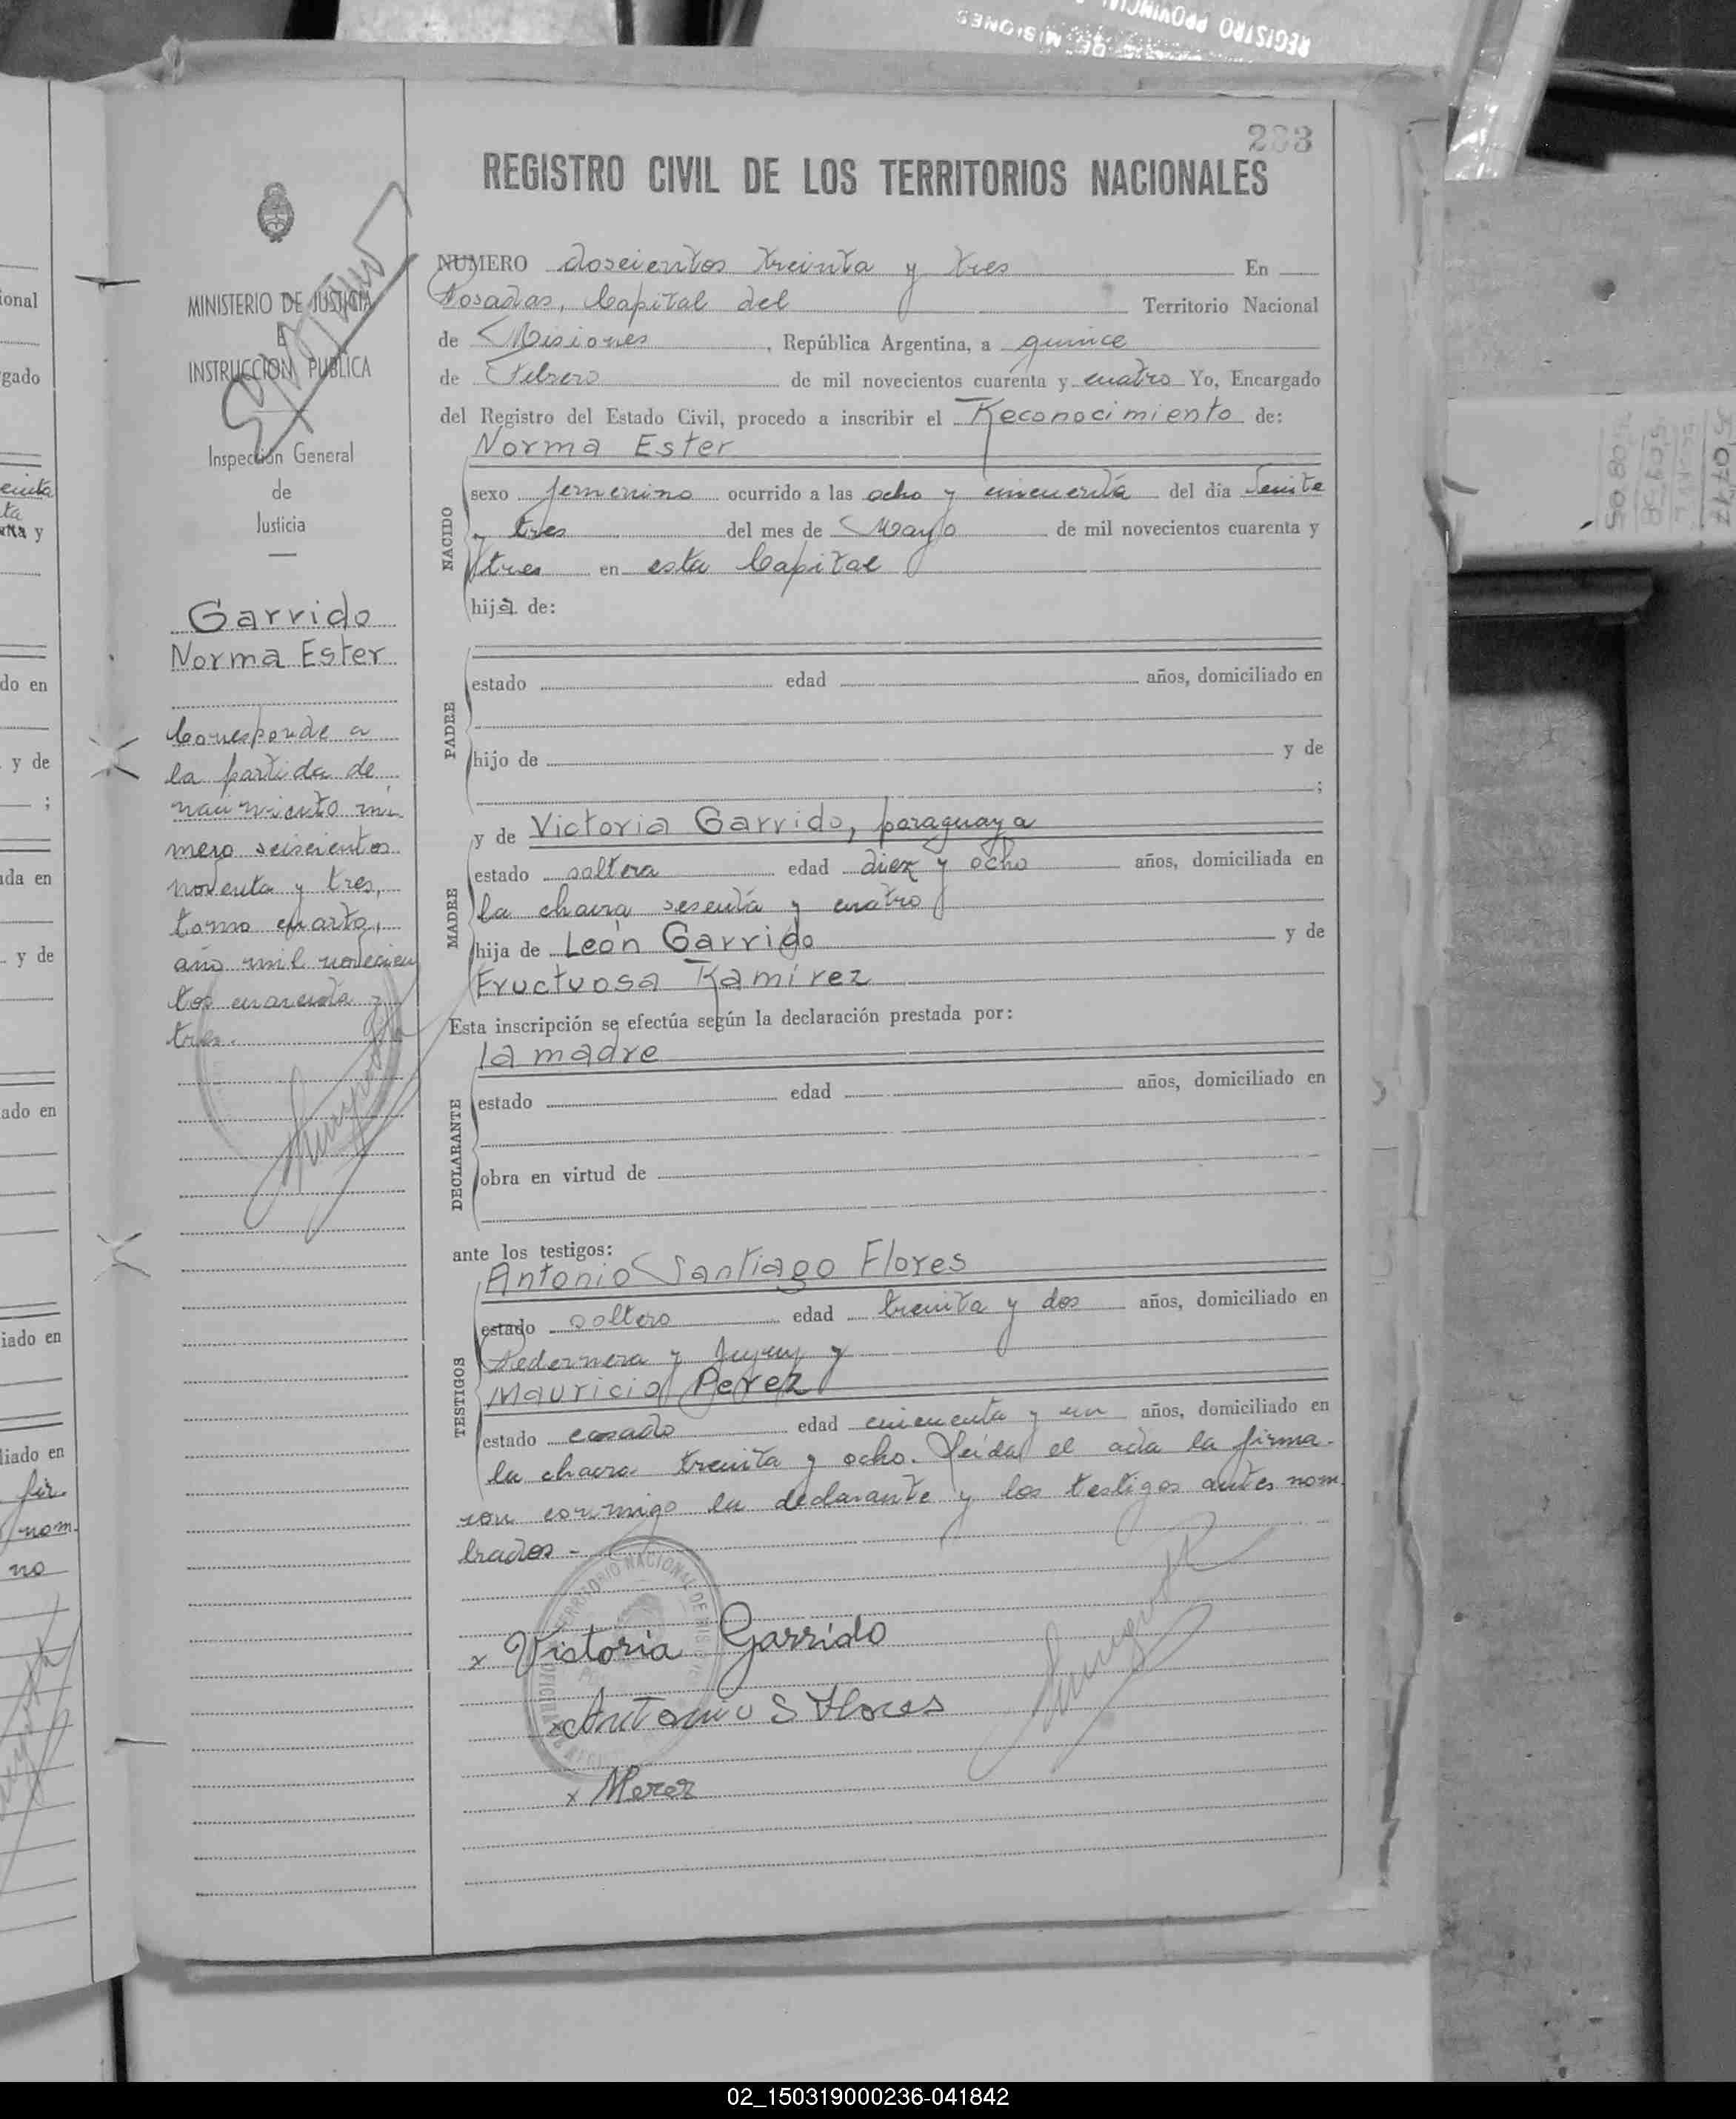 REGISTRO PROVINCIAL
DE MISIONES
233
REGISTRO CIVIL DE LOS TERRITORIOS NACIONALES
MINISTERIO DE JUSTICIA
E
INSTRUCCION PUBLICA
Inspección General
de
Justicia
Garrido
Norma Ester
Corresponde a
la partida de
nacimiento nú
mero seiscientos
noventa y tres,
tomo cuarto,
año mil novecien
tos cuarenta y
tres.
NUMERO doscientos treinta y tres En
Posadas, Capital del Territorio Nacional
de Misiones, República Argentina, a quince
de Febrero de mil novecientos cuarenta y cuatro Yo, Encargado
del Registro del Estado Civil, procedo a inscribir el Reconocimiento de:
NACIDO
Norma Ester
sexo femenino ocurrido a las ocho y cincuenta del día veinte
y tres del mes de Mayo de mil novecientos cuarenta y
tres en esta Capital
hija de:
PADRE
estado edad años, domiciliado en
hijo de y de
;
MADRE
y de Victoria Garrido, paraguaya
estado soltera edad diez y ocho años, domiciliada en
la chacra sesenta y cuatro
hija de León Garrido y de
Fructuosa Ramírez
Esta inscripción se efectúa según la declaración prestada por:
DECLARANTE
la madre
estado edad años, domiciliado en
obra en virtud de
ante los testigos:
TESTIGOS
Antonio Santiago Flores
estado soltero edad treinta y dos años, domiciliado en
Pedernera y Jujuy y
Mauricio Perez
estado casado edad cincuenta y un años, domiciliado en
la chacra treinta y ocho. Leída el acta la firma-
ron conmigo la declarante y los testigos antes nom
brados -
x Victoria Garrido
x Antonio S Flores
x MPerez
TERRITORIO NACIONAL DE MISIONES
02_150319000236-041842